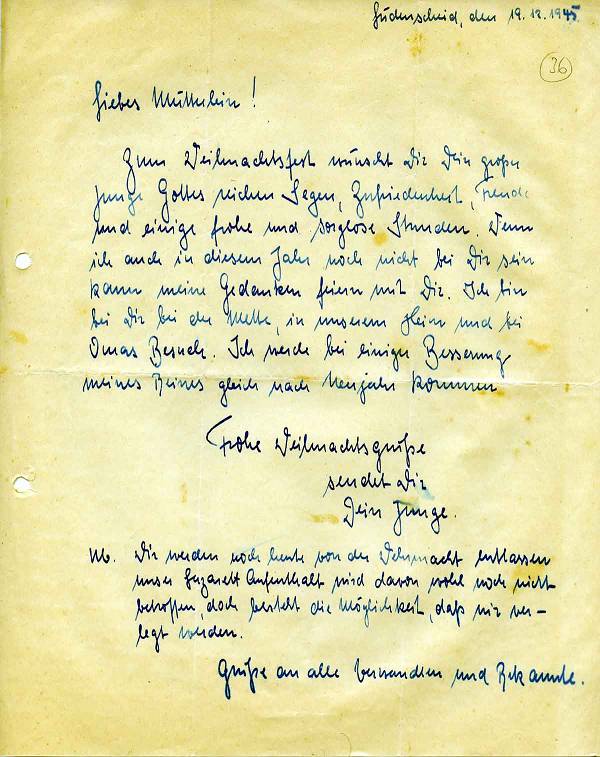 Lüdenscheid, den 19.12.1945
36
Liebes Mütterlein!
Zum Weihnachtsfest wünscht Dir Dein großer
Junge Gottes reichen Segen, Zufriedenheit, Freude
und einige frohe und sorglose Stunden. Wenn
ich auch in diesem Jahr noch nicht bei Dir sein
kann meine Gedanken feiern mit Dir. Ich bin
bei Dir bei der Mette, in unserem Heim und bei
Omas Besuch. Ich werde bei einiger Besserung
meines Beines gleich nach Neujahr kommen
Frohe Weihnachtsgrüße
sendet Dir
Dein Junge.
Nb. Wir werden noch heute von der Wehrmacht entlassen
unser Lazarett Aufenthalt wird davon wohl noch nicht
betroffen, doch besteht die Möglichkeit, daß wir ver-
legt werden.
Grüße an alle Verwandten und Bekannte.